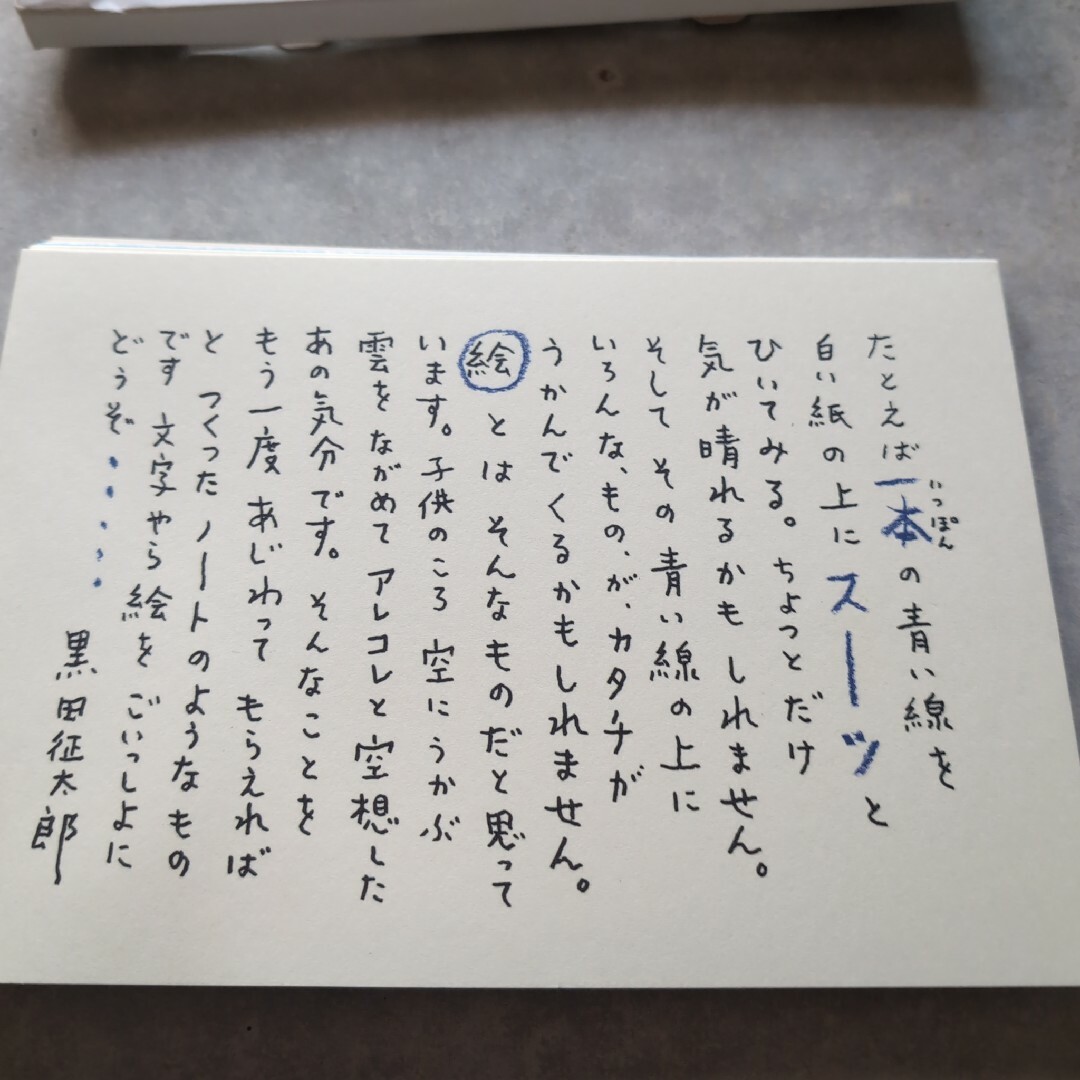 たとえば一本の青い線を
いっぽん
白い紙の上にスーッと
ひいてみる。ちょっとだけ
気が晴れるかもしれません。
そして その青い線の上に
いろんな、もの、が、カタチが
うかんでくるかもしれません。
絵とは そんなものだと思って
います。子供のころ 空にうかぶ
雲をながめて アレコレと空想した
あの気分です。そんなことを
もう一度 あじわって もらえれば
と つくったノートのようなもの
です 文字やら絵を ごいっしょに
どうぞ・・・・・
黒田征太郎